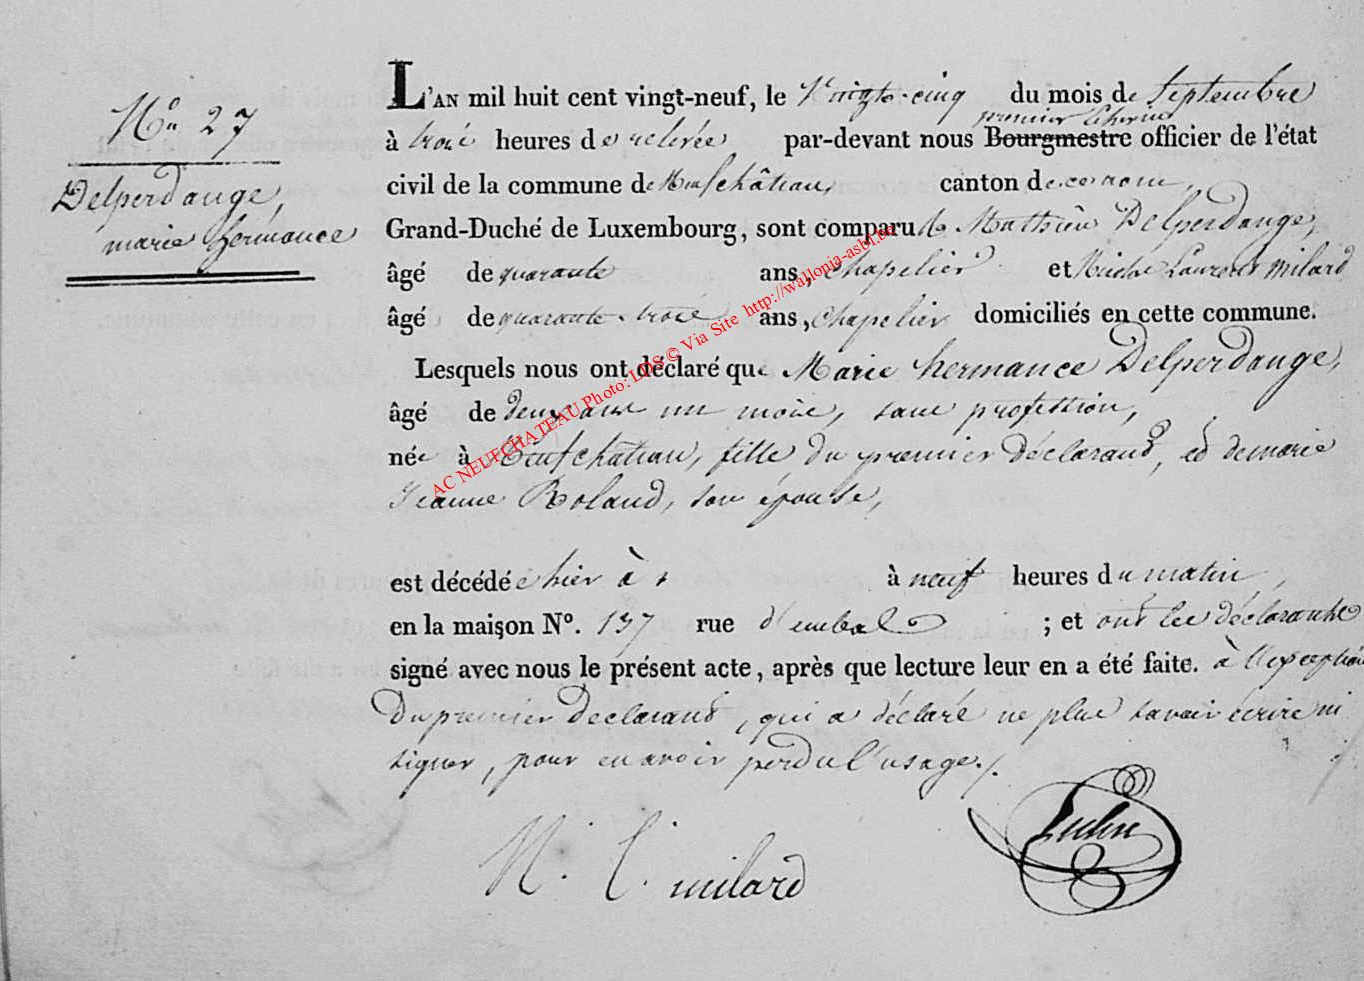 N° 27
Delperdange,
marie hermance
L'AN mil huit cent vingt-neuf, le Vingt-cinq du mois de Septembre
premier Echevin
à trois heures de relevée par-devant nous Bourgmestre officier de l'état
civil de la commune de Neufchâteau, canton de ce nom,
Grand-Duché de Luxembourg, sont comparu Mathieu Delperdange,
âgé de quarante ans, chapelier et Laurent milard
âgé de quarante-trois ans, chapelier domiciliés en cette commune.
Lesquels nous ont déclaré que Marie hermance Delperdange,
âgé de deux ans un mois, sans profession,
née à Neufchâteau, fille du premier déclarant, et de marie
Jeanne Roland, son épouse,
est décédée hier à neuf heures du matin,
en la maison N°. 137 rue ; et ont les déclarants
signé avec nous le présent acte, après que lecture leur en a été faite. à l'exception
du premier declarant, qui a déclaré ne plus savoir écrire ni
signer, pour en avoir perdu l'usage./.
N. L. milard
AC NEUFCHATEAU Photo: LDS © Via Site http://wallonia-asbl.be